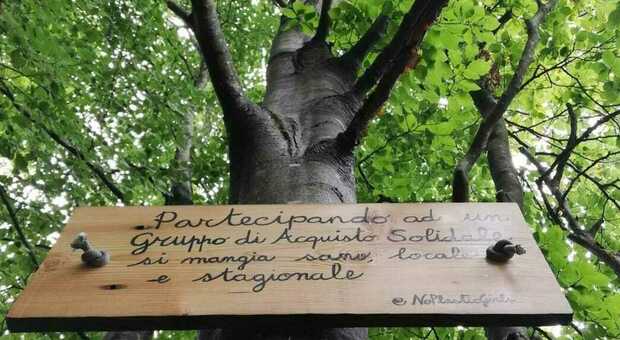 Partecipando ad un
Gruppo di Acquisto Solidale
si mangia sano, locale
e stagionale
@ NoPlasticGirls